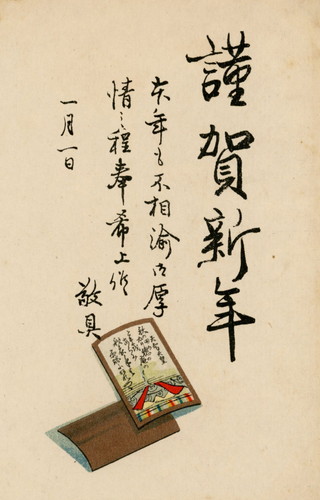 謹賀新年
本年も不相渝御厚
情之程奉希上候
敬具
一月一日
天智天皇